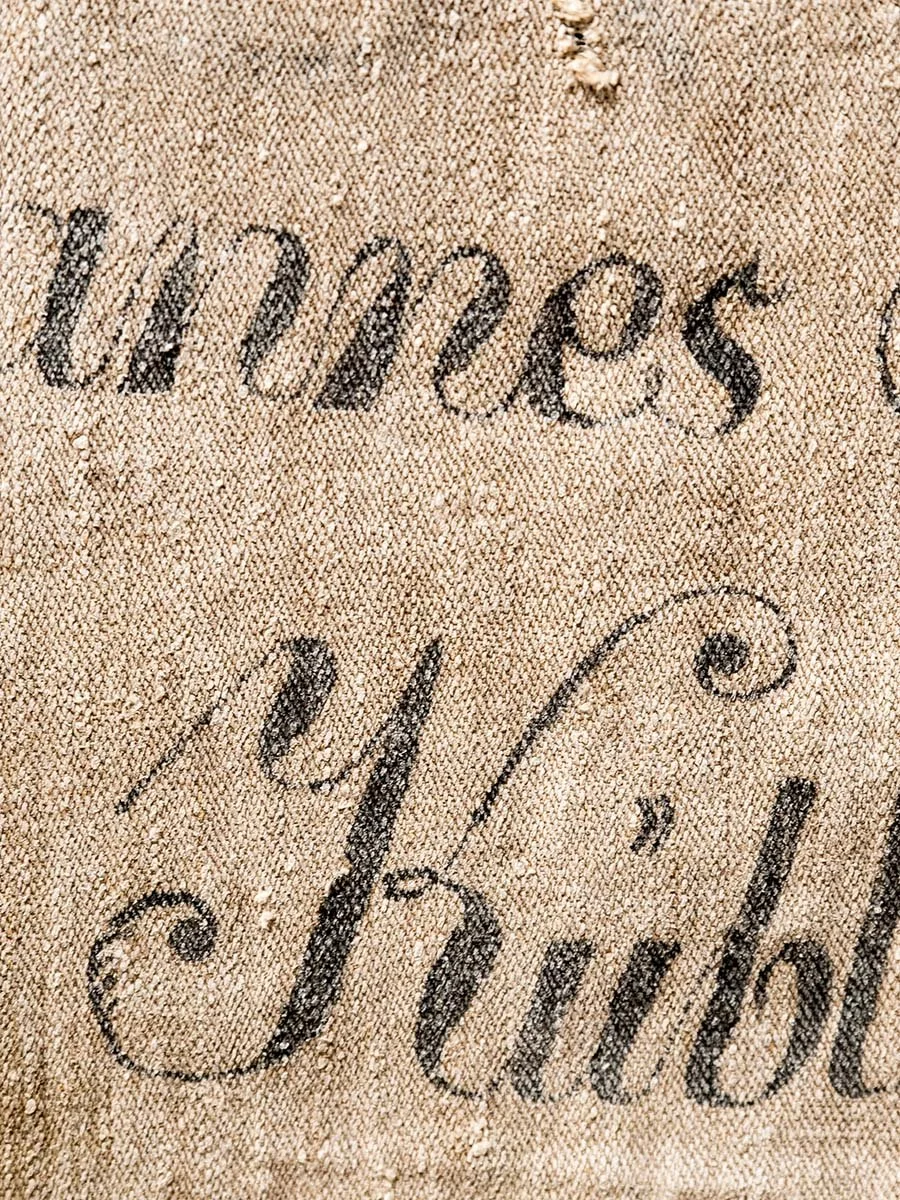 unnes
Kübl